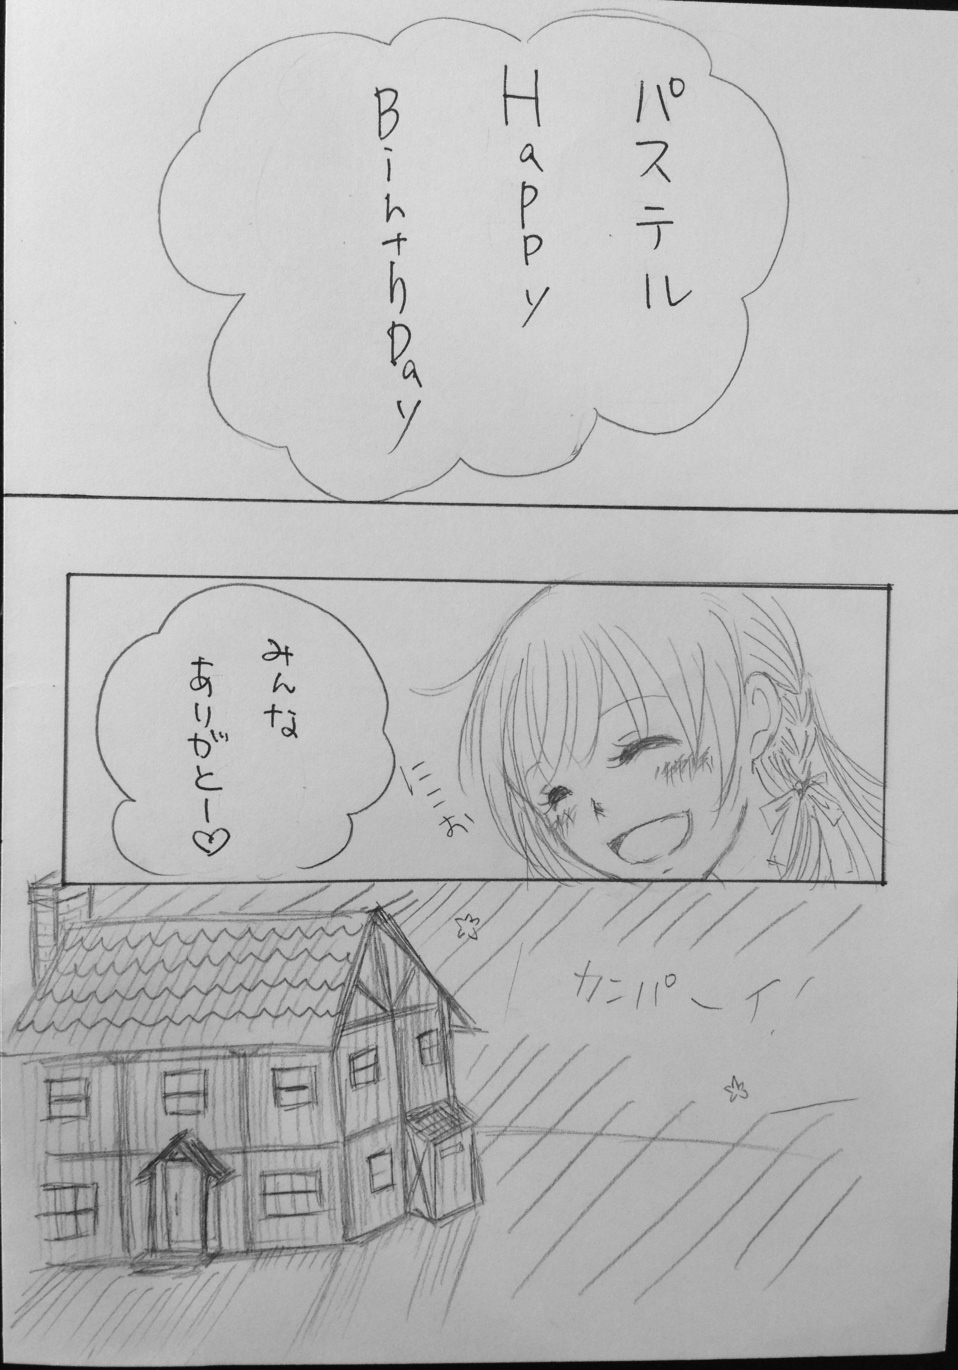 パステル
Happy
BirthDay
みんな
ありがとー♡
にこお
カンパーイ!